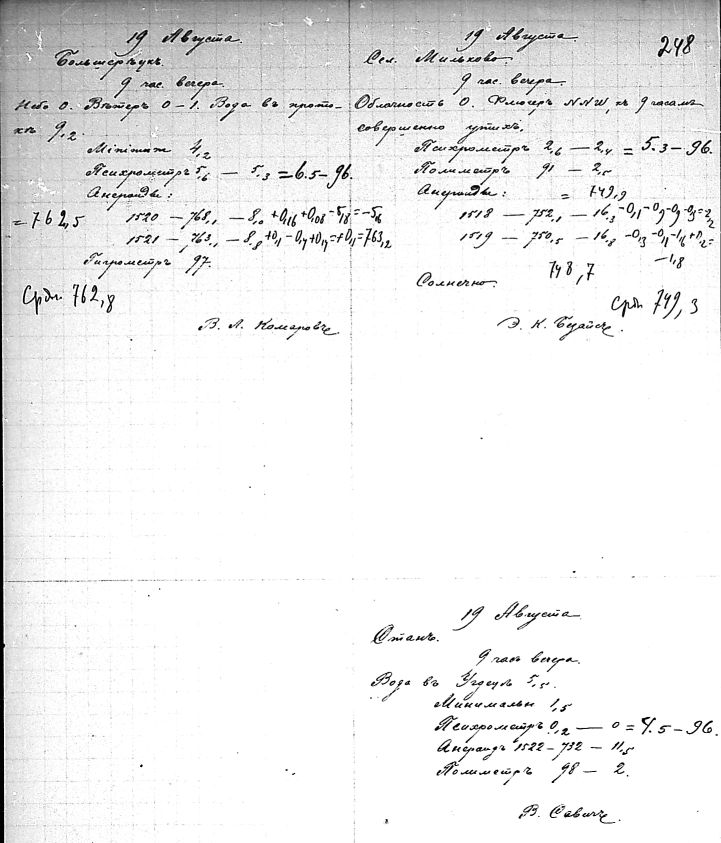 19 Августа
Большерѣцкъ.
9 час. вечера.
Небо 0. Вѣтеръ 0 – 1. Вода въ прото-
кѣ 9,2.
Minimum 4,2
Психрометръ 5,6 — 5,3 = 6.5 – 96.
Анероиды:
= 762,5 1520 – 768,1 – 8,0 + 0,16 + 0,08 – 5,8 = –5,6
1521 – 763,1 – 8,8 + 0,1 – 0,4 + 0,4 = + 0,1 = 763,2
Гигрометръ 97.
Срдн. 762,8
В. Л. Комаровъ
248
19 Августа
Сел. Мильково.
9 час. вечера.
Облачность 0. Флюгеръ NNW, къ 9 часамъ
совершенно утихъ.
Психрометръ 2,6 — 2,4 = 5.3 – 96.
Полиметръ 91 – 2,5
Анероиды: = 749,9
1518 – 752,1 – 16,3
1519 – 750,5 – 16,8
–1,8
748,7
Солнечно.
Срдн 749,3
19 Августа
9 часъ вечера.
Вода въ 5,5.
Минимальн 1,5
Психрометръ 0,2 — 0 = 4.5 – 96.
Анероидъ 1522 – 732 – 11,5
Полиметръ 98 – 2.
В. Савичъ.